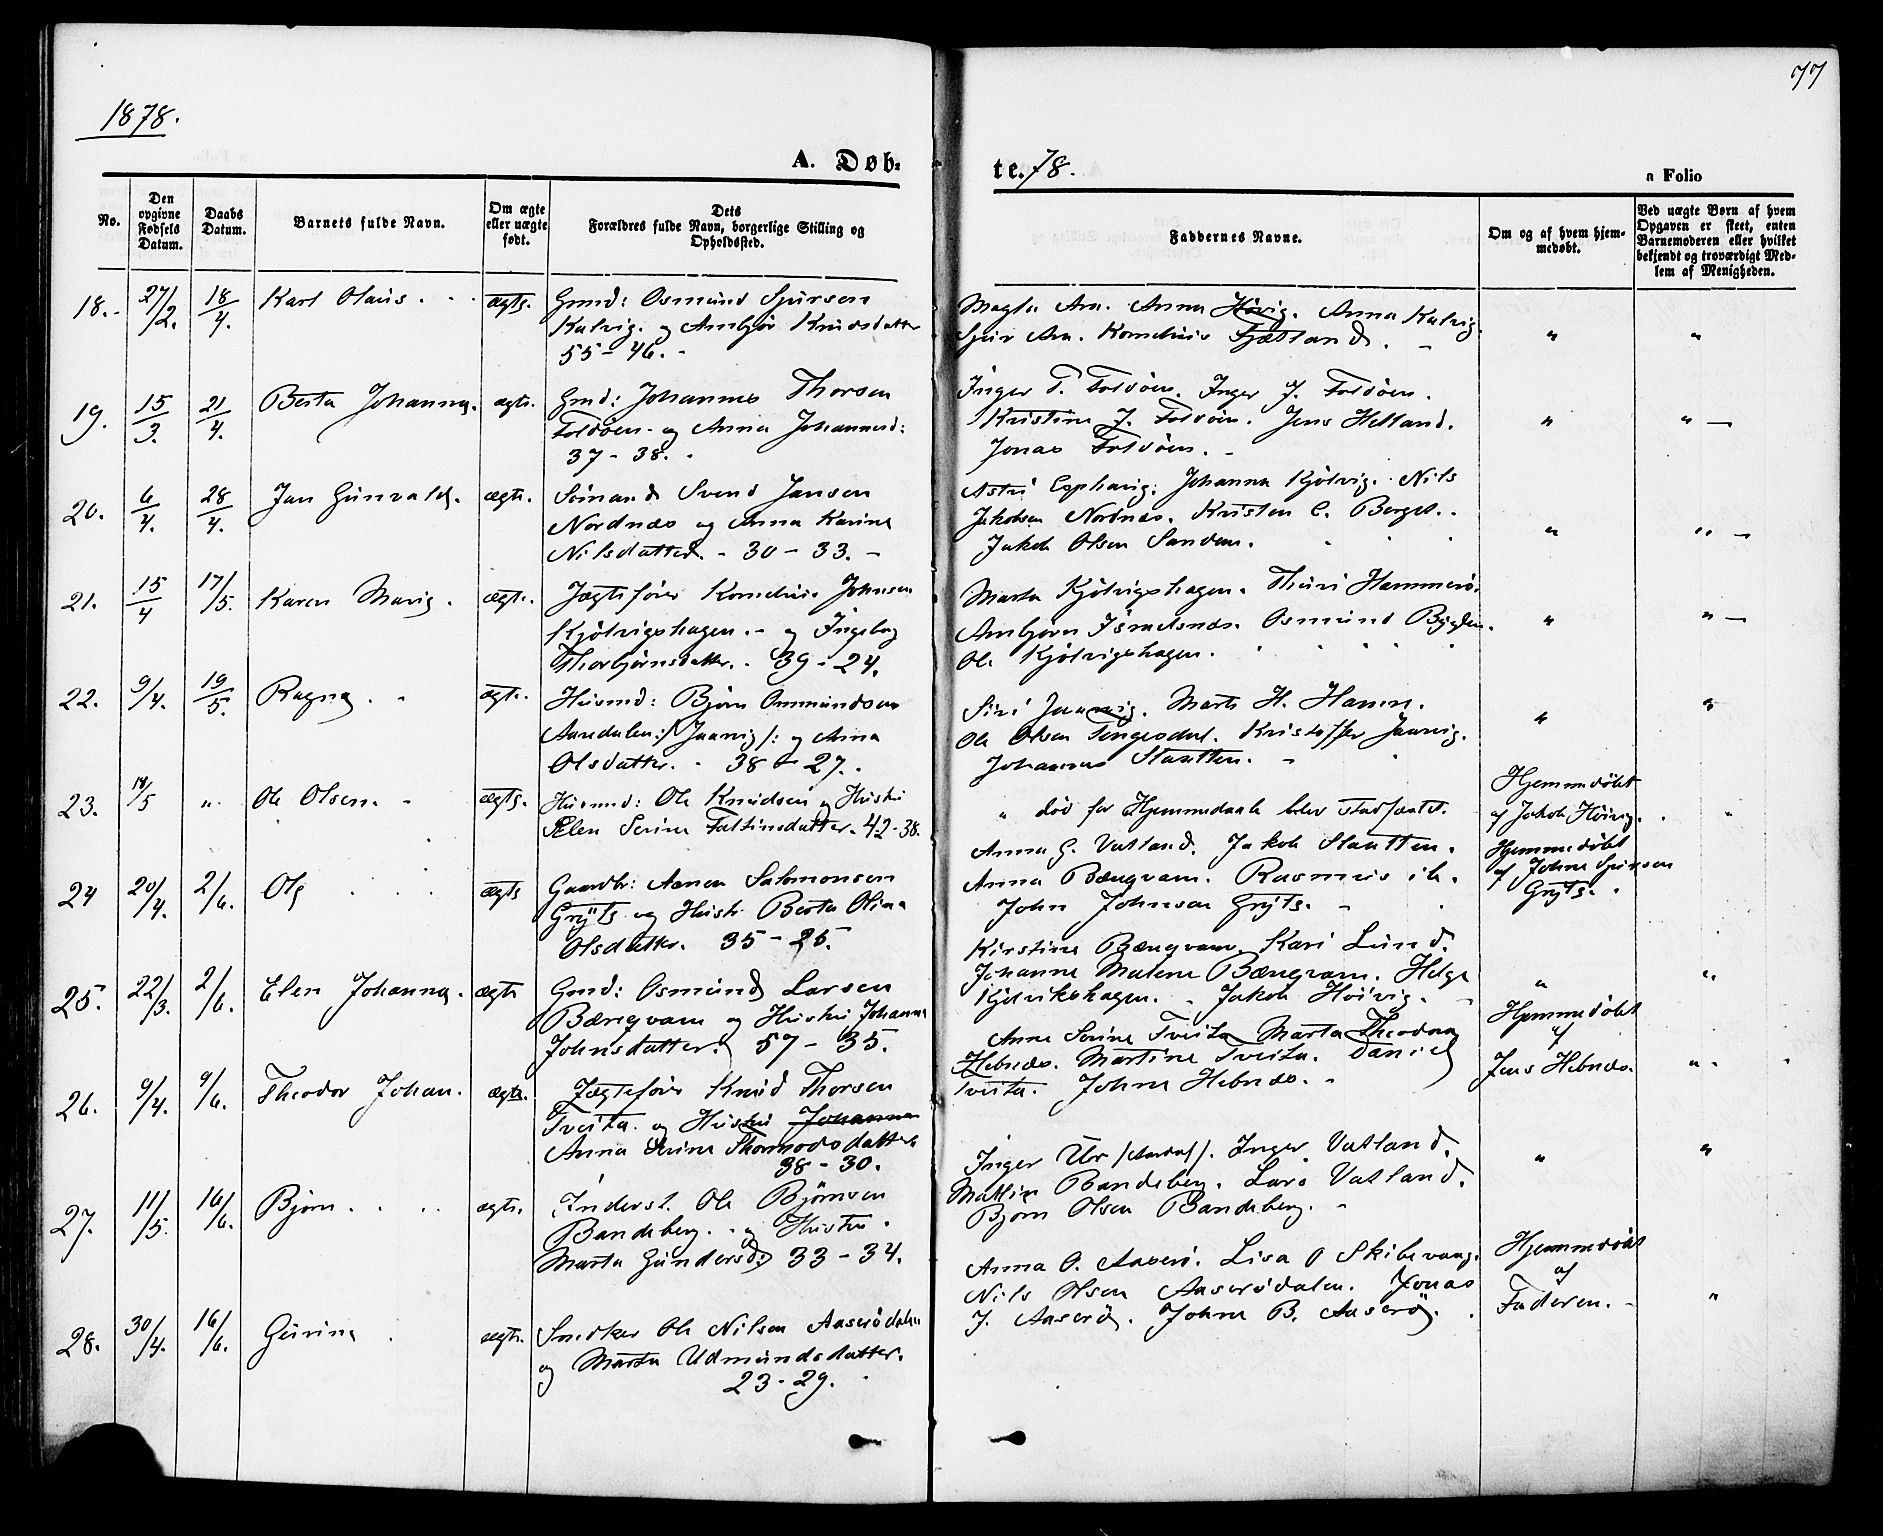 1878.
77
A. Døb-
te. 78.
a Folio
No.
Den opgivne Fødsels Datum.
Daabs Datum.
Barnets fulde Navn.
Om ægte eller uægte født.
Dets Forældres fulde Navn, borgerlige Stilling og Opholdssted.
Faddernes Navne.
Om og af hvem hjemmedøbt.
Ved uægte Børn af hvem Opgaven er skeet, enten Barnemoderen eller hvilket bekjendt og troværdigt Medlem af Menigheden.
18. 27/2. 18/4. Karl Olaus. ægte. Gmd: Osmund Sjursen
Kalvig. og Anbjør Knudsdatter
55 - 46. -
Magla Ara. Anna Høvig. Anna Kalvig.
Sjur Ara. Kornelius Fjætland. -
" "
19. 15/3. 21/4. Berta Johanna. ægte. Gmd: Johannes Thorsen
Foldøen. og Anna Johannesd:
37 - 38. -
Inger T. Foldøen. Inger J. Foldøen.
Kristine J. Foldøen. Jens Helland.
Jonas Foldøen. -
" " -
20. 6/4. 28/4. Jan Gunvald. ægte. Sømand Svend Jansen
Nordnæs og Anna Karine
Nilsdatter. - 30 - 33. -
Astri Johanna Kjølvig. Nils
Jakobsen Nordnæs. Kristen C. Berget.
Jakob Olsen Sanden.
" " -
21. 15/4 17/5. Karen Marie. ægte. Jægtefører Kornelius Johnsen
Kjølvigshagen. - og Ingeborg
Thorbjørnsdatter. - 39 - 24.
Marta Kjølvigshagen. Thuri Hammerø.
Anbjørn Israelsnæs. Osmund Bygden.
Ole Kjølvigshagen.
" " -
22. 9/4. 19/5. Ragna. ægte. Husmd: Bjørn Ommundsen
Aardalen :/Jaarvig/: og Anna
Olsdatter. - 38 - 27. -
Siri Jaarvig. Marta H. Hamre.
Ole Olsen Tengesdal. Kristoffer Jaarvig.
Johannes Slaatten. -
" "
23. 18/5 " Ole Olsen. ægte. Husmd: Ole Knudsen og Hustru
Elen Serine Faltinsdatter. 42 - 38.
" død før Hjemmedaab blev stadfæstet.
Hjemmedøbt
af Jakob Høivig.
24 20/4. 2/6. Ole ægte Gaardbr: Aanen Salomonsen
Gryte og Hustr. Berta Olina
Olsdatter. 35 - 25.
Anna G. Vatland. Jakob Slaatten.
Anna Bængvam. Rasmus ib.
John Johnsen Gryte. -
Hjemmedøbt
af Johne Sjursen
Gryte. -
25. 22/3. 2/6. Elen Johanna. ægte Gmd: Osmund Larsen
Bængvam og Hustru Johanna
Johnsdatter. 57 - 35.
Kirstine Bængvam. Kari Lund.
Johanna Malene Bængvam. Helge
Kjølvikshagen. - Jakob Høivig. -
" "
26. 9/4. 9/6. Theodor Johan. ægte. Jægtefører Knud Thorsen
Tveita. og Hustru Johanna
Anna Serine Thormodsdatter
38 - 30.
Anne Serine Tveita Marta Theodora
Hebnæs. Martine Tveita. Daniel
Tveita. Johne Hebnæs. -
Hjemmedøbt
af
Jens Hebnæs. " -
27. 11/5. 16/6. Bjørn. ægte. Inderst. Ole Bjørnsen
Bandeberg. - og Hustru
Marta Gundersd. 33 - 34.
Inger Ur /Aardal/. Inger Vatland.
Mallin Bandeberg. Lars Vatland.
Bjørn Olsen Bandeberg. -
" "
28. 30/4. 16/6. Gurine ægte. Snedker Ole Nilsen Aaserødalen
og Marta Udmundsdatter.
23 - 29.
Anna O. Aaserø. Lisa O Skibevaag.
Nils Olsen Aaserødalen. Jonas
J. Aaserø. Johne B. Aaserø.
Hjemmedøbt
af
Faderen. - "